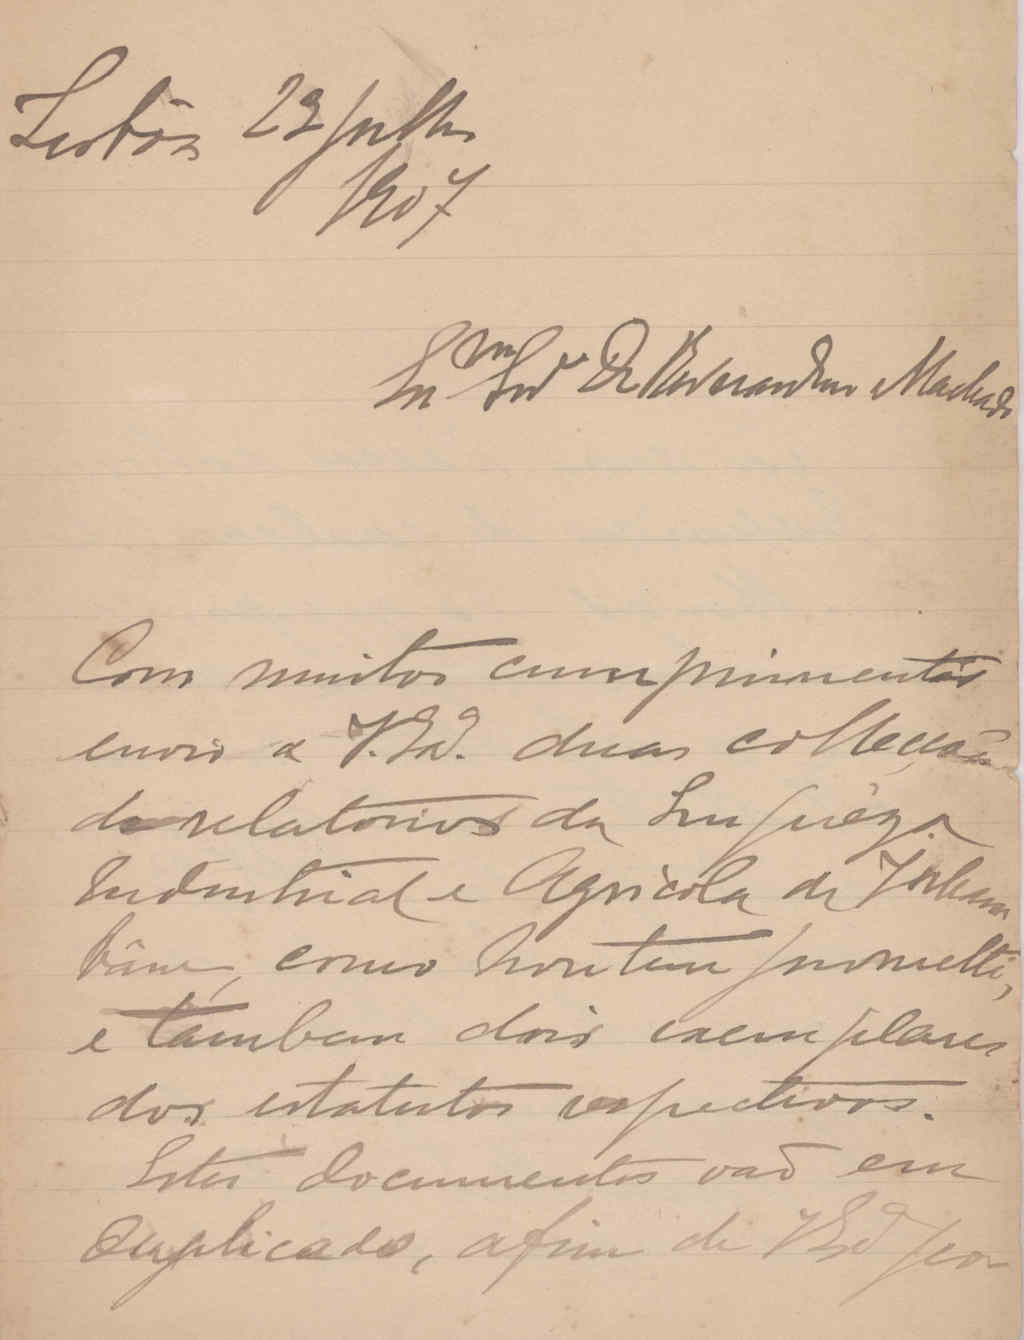 Lisbôa 22 Julho
1907
Exmo Snr Dr Bernardino Machado
Com muitos cumprimentos
envio a V. Exa. duas collecções
de relatorios da Empreza
Industrial e Agricola de Inham
bane, como hontem prometti,
e tambem dois exemplares
dos estatutos respectivos.
Estes documentos vaõ em
duplicado, afim de V Exa